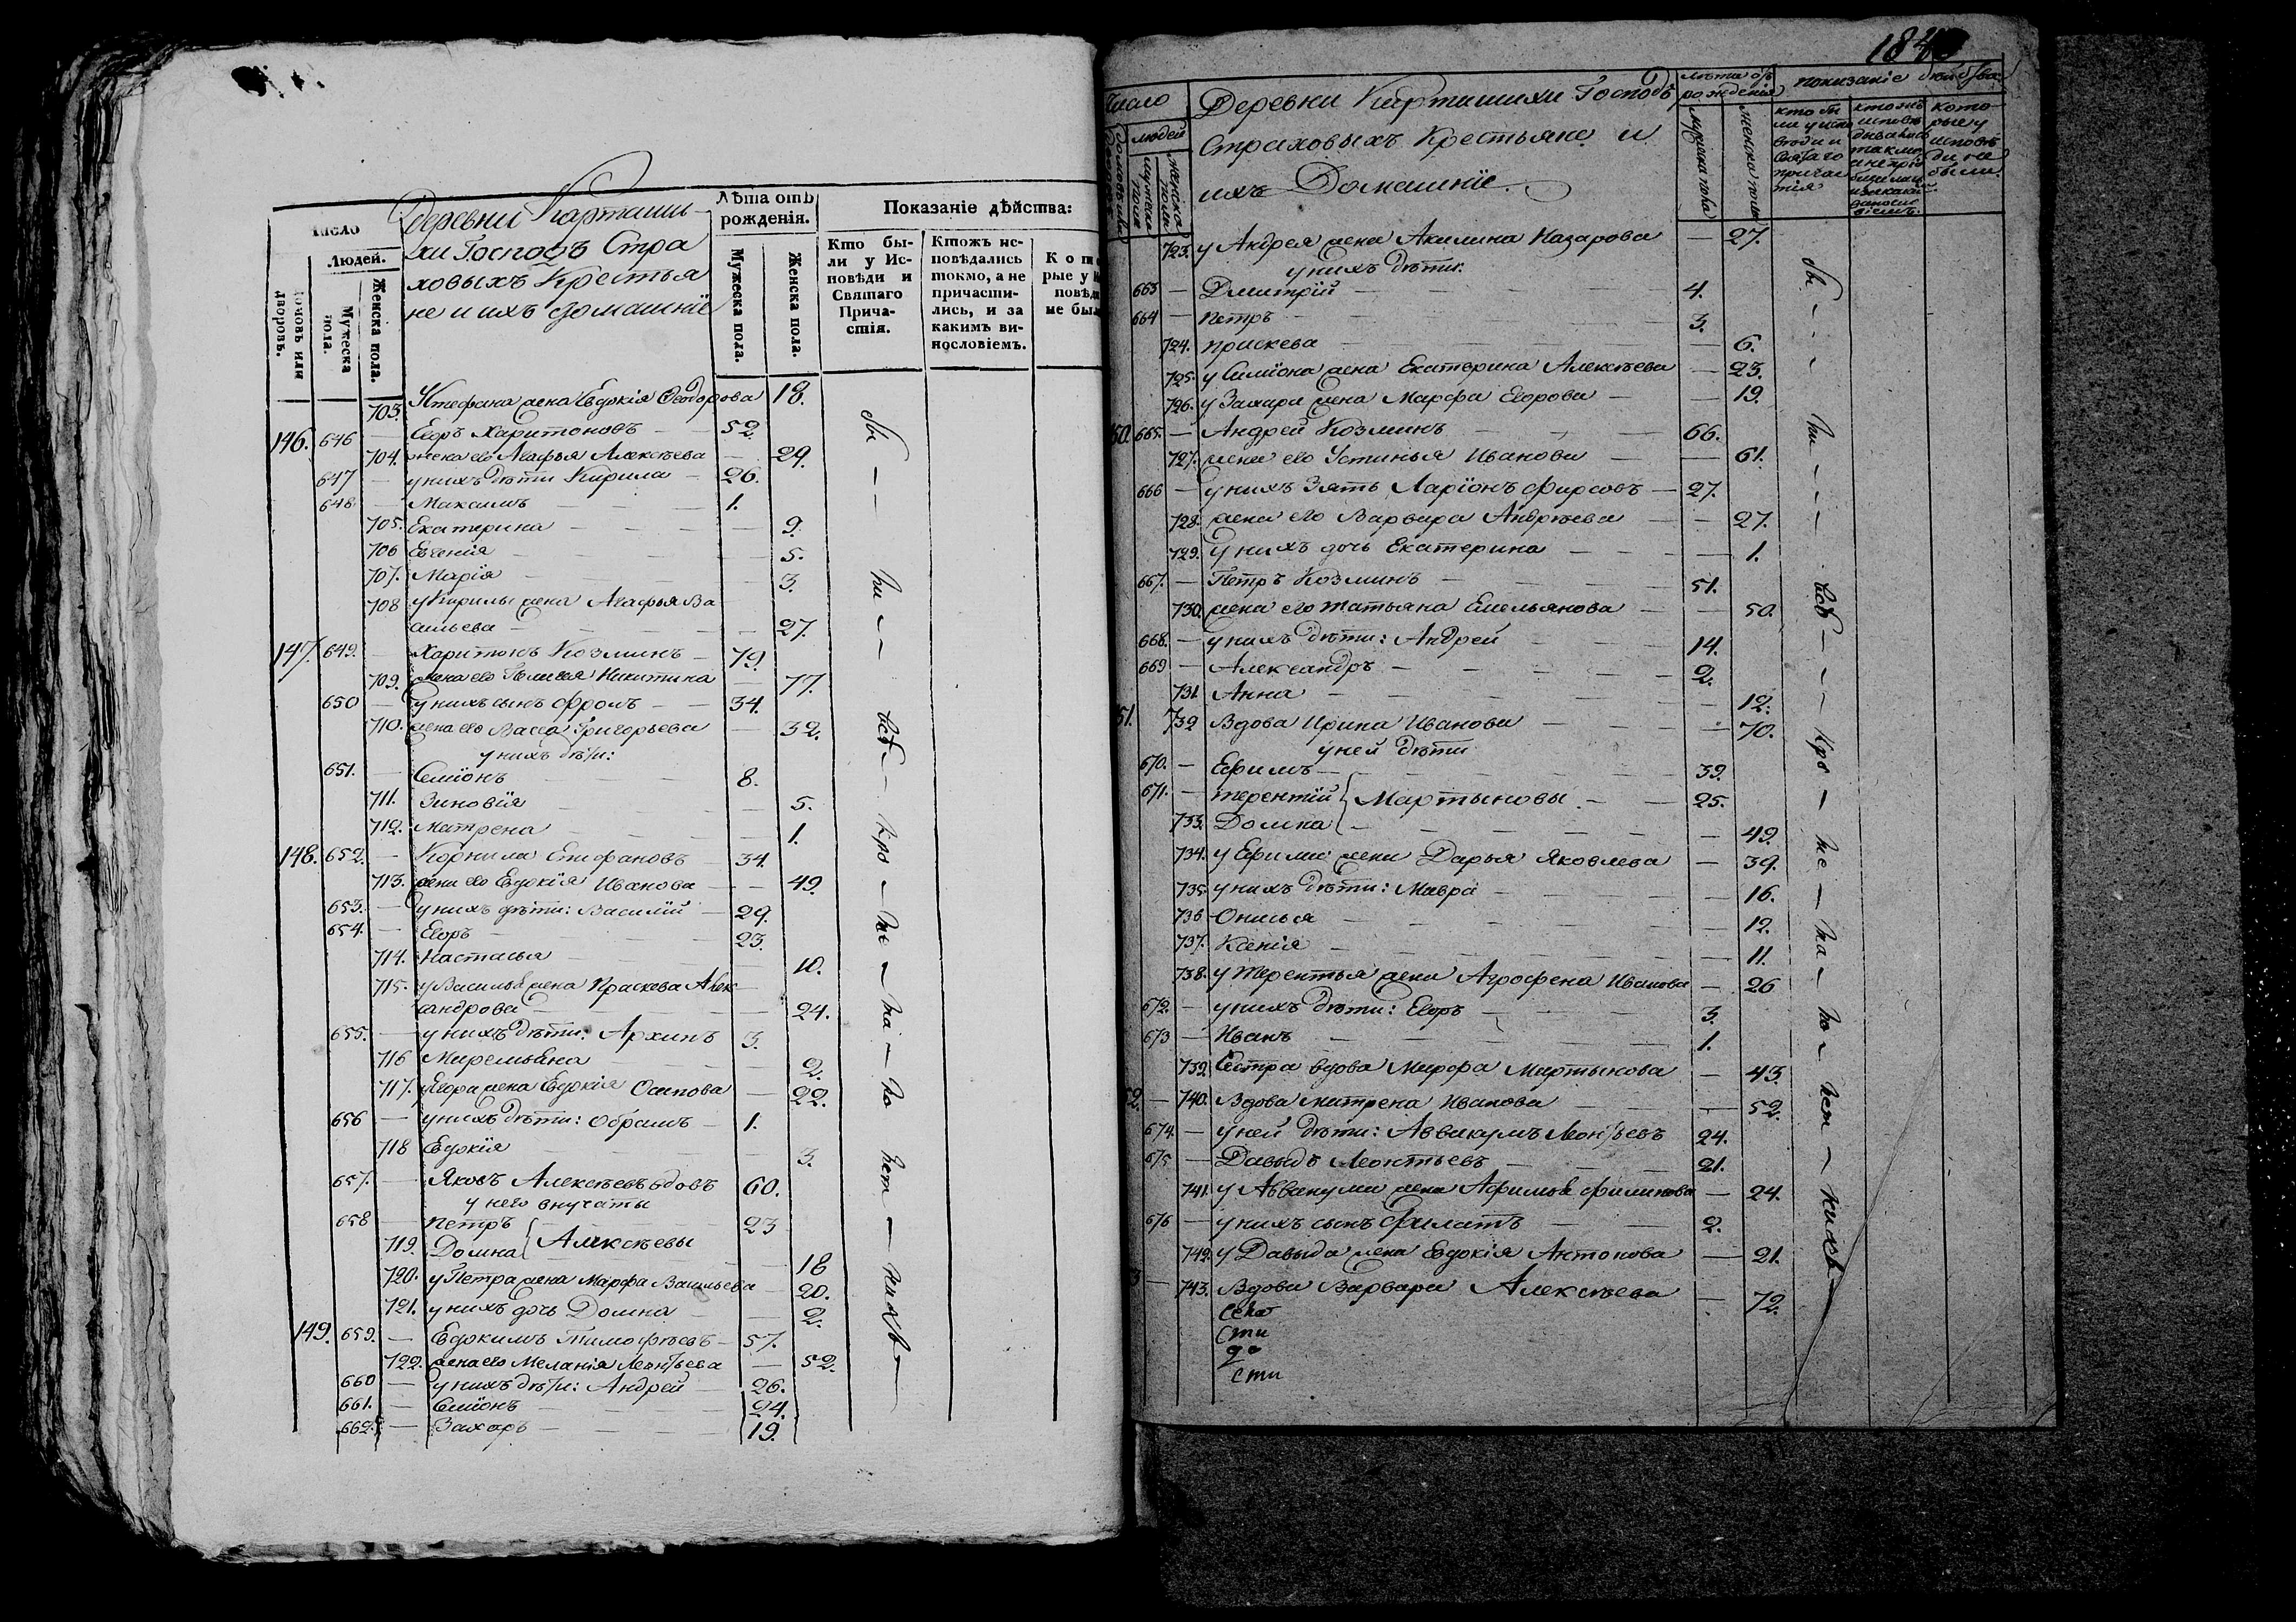 Число
Людей.
домовъ или дворовъ.
Мужеска пола.
Женска пола.
Деревни Карташи
хи Господъ Стра
ховыхъ Крестья
не и ихъ домашніе
Лѣта отъ рожденія.
Мужеска пола.
Женска пола.
Показаніе дѣйства:
Кто бы-
ли у Ис-
повѣди и
Святаго
Прича-
стія.
Ктожъ ис-
повѣдались
токмо, а не
причасти-
лись, и за
какимъ ви-
нословіемъ.
703. У Стефана жена Евдокія Ѳеодорова 18.
146. 646 — Егоръ Харитоновъ — 52.
704. жена его Агафья Алексѣева — 29.
647 — у нихъ дѣти Кирила — 26.
648 — Максимъ — 1.
705. Екатерина — 9.
706 Евгенія — 5.
707. Марія — 3.
708 у Кирилы жена Агафья Ва
сильева — 27.
147. 649. — Харитонъ Козминъ — 79.
709. жена его Никитина — 77.
650 — у нихъ сынъ Фролъ — 34.
710. жена его Васса Григорьева — 32.
у нихъ дѣти:
651. — Семіонъ 8.
711. Зиновія — 5.
712. Матрена — 1.
148. 652. — Корнила Епифановъ — 34.
713. жена его Евдокія Иванова — 49.
653. — у нихъ дѣти: Василій — 29.
654. — Егоръ — 23.
714. Настасья — 10.
715. у Василья жена Праскева Алек
сандрова — 24.
655. — у нихъ дѣти: Архипъ 3.
716 Маремьяна — 2.
717. у Егора жена Евдокія Осипова — 22.
656 — у нихъ дѣти: Обрамъ — 1.
718 Евдокія — 3.
657. — Яковъ Алексѣевъ вдовъ 60.
у него внучаты
658 — Петръ 23
719. Домна Алексѣевы 18
720. у Петра жена Марфа Васильева — 20.
721. у нихъ дочь Домна — 2.
149. 659. — Евдокимъ Тимофѣевъ — 57.
722. жена его Меланія Леонтьева — 52.
660 — у нихъ дѣти: Андрей — 26.
661. — Семіонъ — 24.
662. — Захаръ — 19.
184
Число
людей
Деревни Карташихи Господъ
Страховыхъ Крестьяне и
ихъ Домашніе.
лѣта отъ рожденія
мужеска пола
женска пола
показаніе дѣйства
723. у Андрея жена Акилина Назарова — 27.
у нихъ дѣти:
663 — Дмитрій — 4.
664 — Петръ — 3.
724. праскева — 6.
725. у Симіона жена Екатерина Алексѣева — 23.
726. у Захара жена Марфа Егорова — 19.
665. — Андрей Козминъ — 66.
727. жена его Устинья Иванова — 61.
666 — у нихъ Зять Ларіонъ Фирсовъ — 27.
728. жена его Варвара Андрѣева — 27.
729. у нихъ дочь Екатерина — 1.
667. — Петръ Козминъ — 51.
730. жена его татьяна Емельянова — 50.
668. — у нихъ дѣти: Андрей — 14.
669 — Александръ — 2.
731. Анна — 12.
51. 732 Вдова Ирина Иванова — 70.
у ней дѣти
670. — Ефимъ — 39.
671. — терентій Мартыновы — 25.
733. Домна — 49.
734. у Ефима жена Дарья Яковлева — 39.
735. у нихъ дѣти: Мавра — 16.
736 Онисья — 12.
737. Ксенія — 11.
738. у терентья жена Агрофена Иванова — 26
672. — у нихъ дѣти: Егоръ — 3.
673 — Иванъ — 1.
739. Сестра вдова Марфа Мартынова — 43.
52. — 740. Вдова матрена Иванова — 52.
674. — у ней дѣти: Аввакумъ Леонтьевъ 24.
675 — Давыдъ Леонтьевъ — 21.
741. у Аввакума жена Афимья Филипова — 24.
676 — у нихъ сынъ Филатъ — 2.
742. у Давыда жена Евдокія Антонова — 21.
3 — 743. Вдова Варвара Алексѣева — 72.